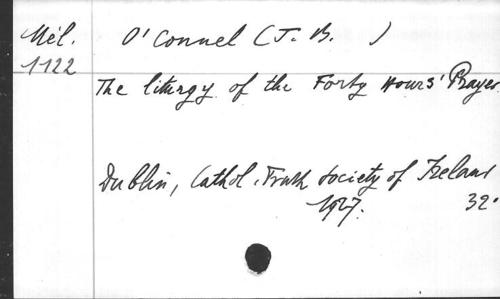 Mél. O'Connel (J. B. )
1122
The liturgy of the Forty Hours' Prayer
Dublin, Cathol. Truth Society of Ireland
1927. 32°